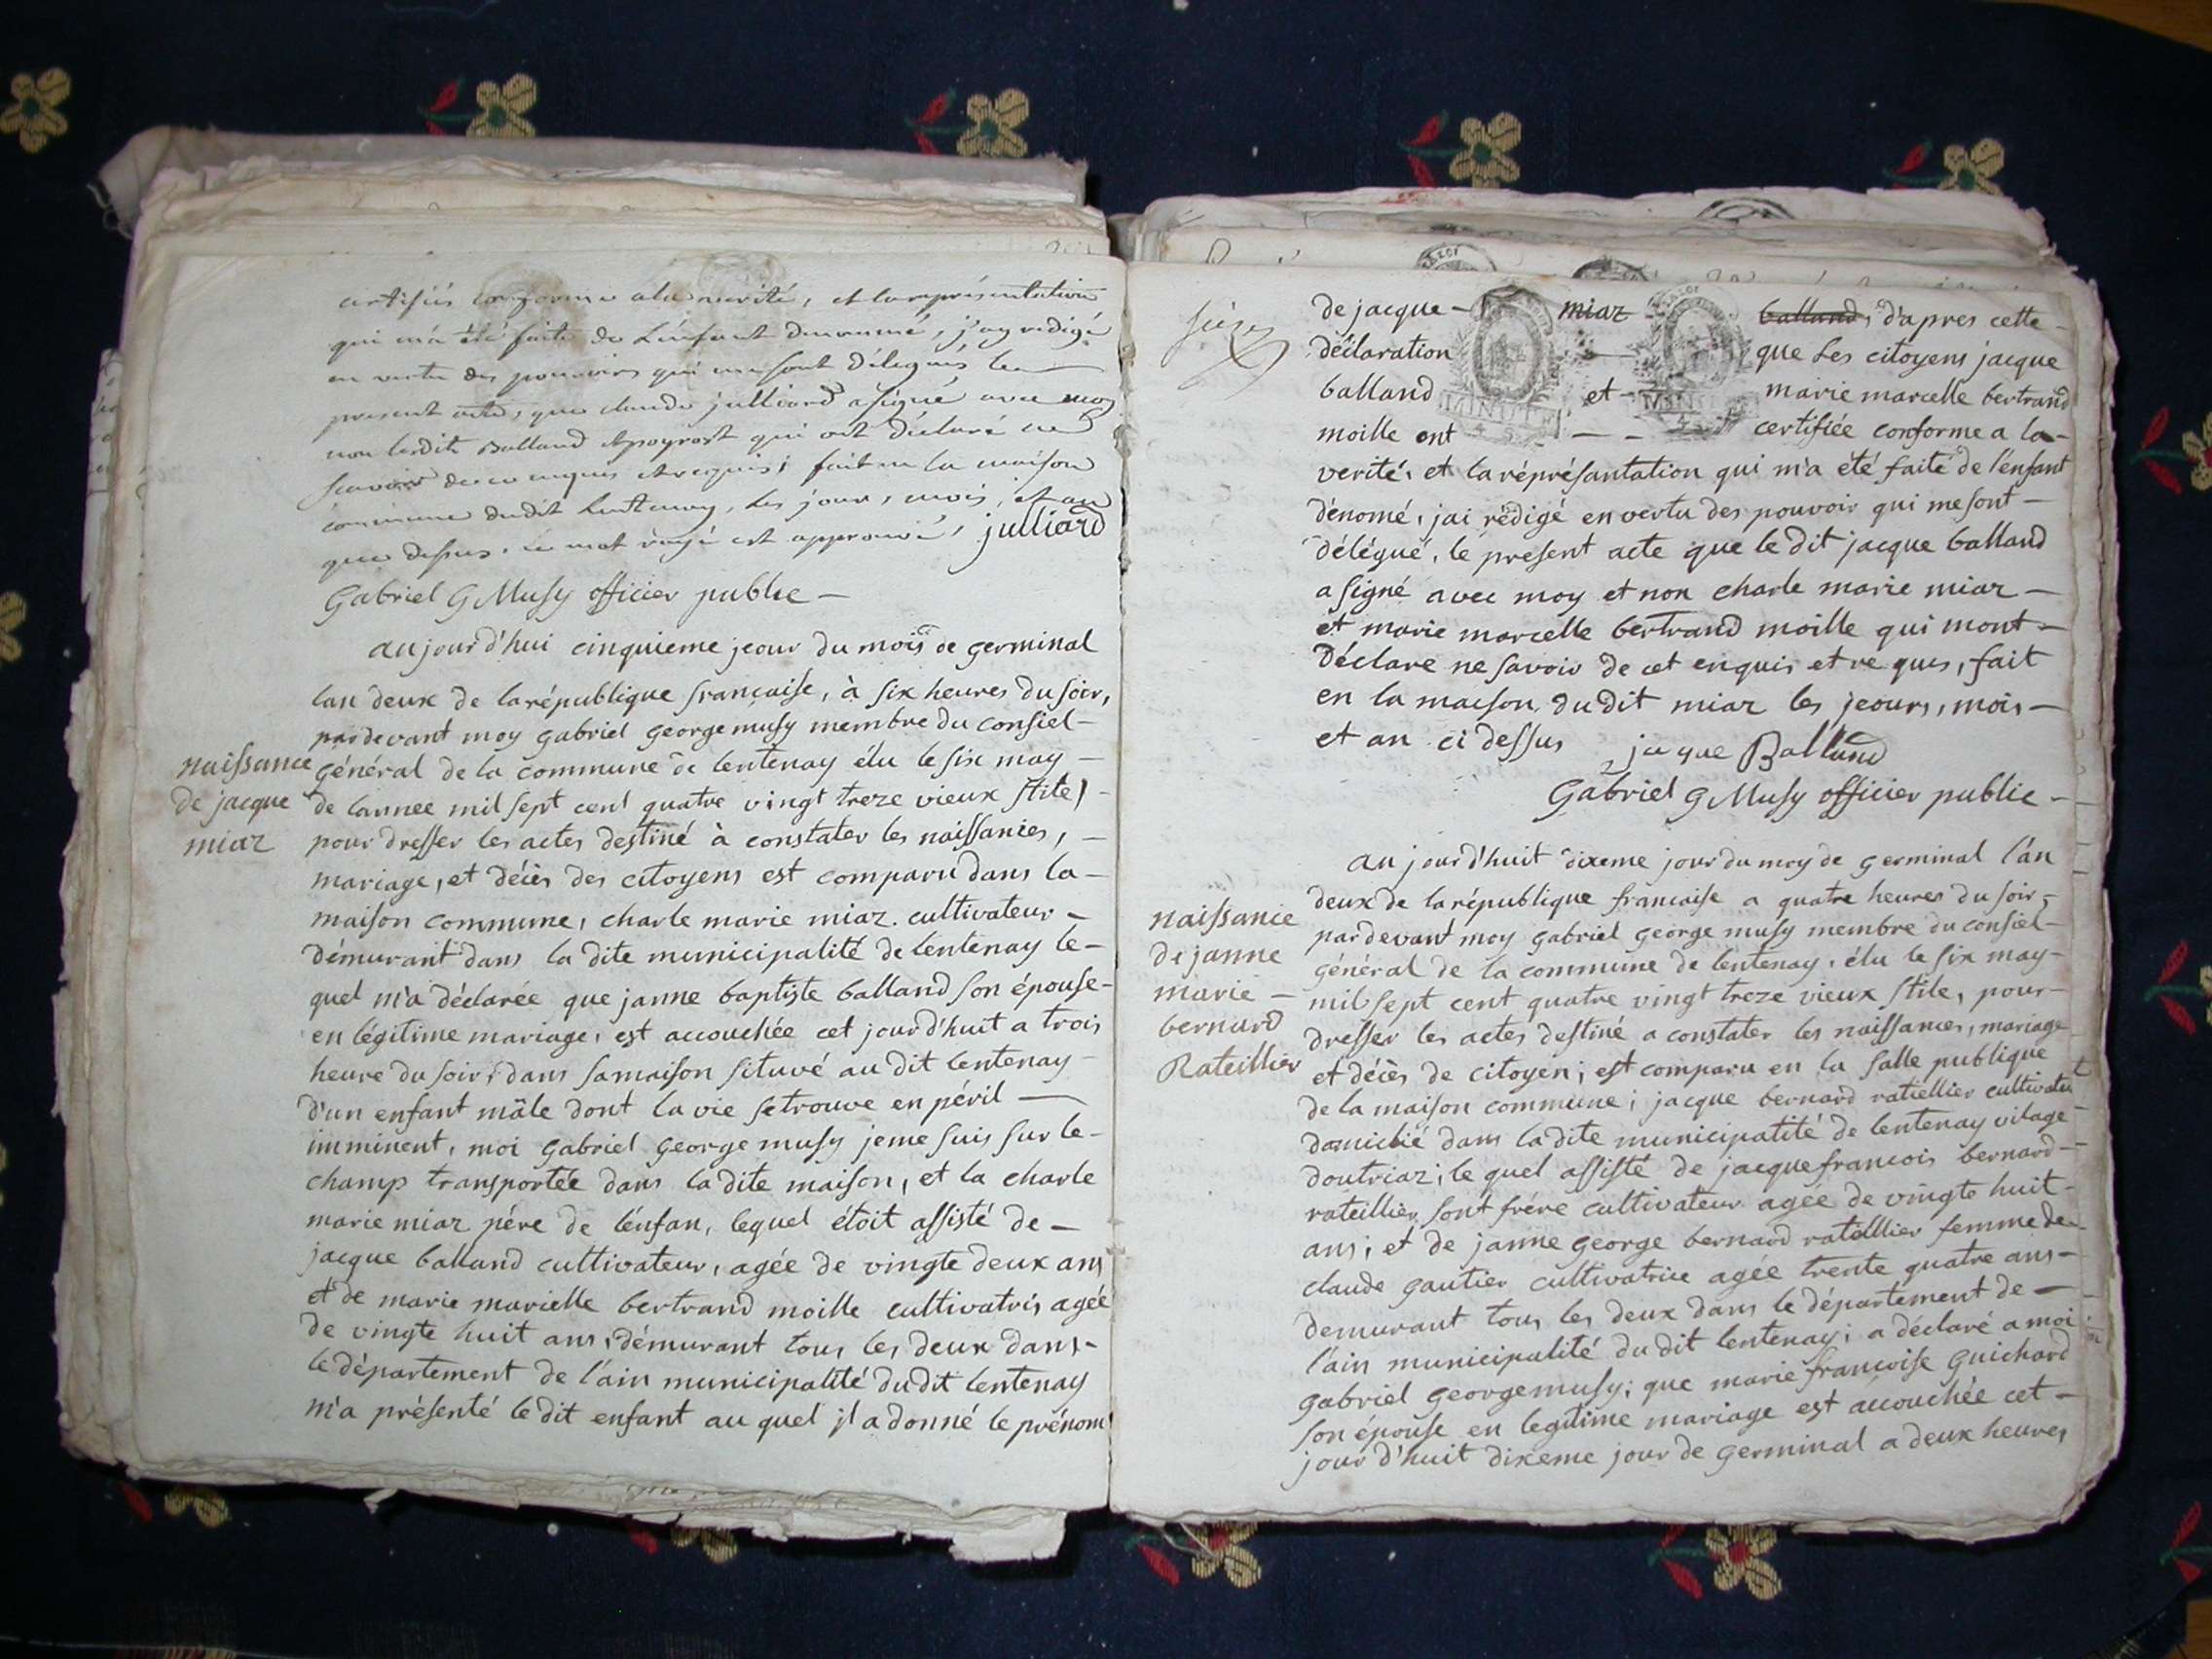 certifiés conforme ala verité, et la représentation
qui m'a été faite de L'enfant denommé, j'ay redigé
en vertu des pouvoirs qui me sont Délegués le
present acte, que claude julliard a signé avec moy
non lesdits Balland et poyrost qui ont déclaré ne
scavoir de ce enquis et requis; fait en la maison
commune dudit Lentenay, Les jour, mois, et an
que dessus. le mot rayé est approuvé, julliard
Gabriel G Musy officier public
aujourd'hui cinquieme jeour du mois de germinal
lan deux de la république française, à six heures du soir,
par devant moy gabriel george musy membre du consiel
naissance
de jacque
miaz
général de la commune de lentenay élu le six may
de lannee mil sept cent quatre vingt treze vieux stile,
pour dresser les actes destiné à constater les naissances,
mariage, et décès des citoyens est comparu dans la
maison commune, charle marie miaz. cultivateur
démurant dans la dite municipalité de lentenay le-
quel m'a déclarée que janne baptiste balland son épouse
en légitime mariage, est accouchée cet jourd'huit a trois
heure du soir, dans sa maison situvé au dit lentenay
d'un enfant mâle dont la vie se trouve en péril
imminent, moi gabriel george musy je me suis sur le-
champ transportée dans la dite maison, et la charle
marie miaz pére de lénfan, lequel étoit assisté de
jacque balland cultivateur, agée de vingte deux ans
et de marie marielle bertrand moille cultivatris agée
de vingte huit ans, démurant tous les deux dans
le département de l'ain municipalité dudit lentenay
m'a présenté le dit enfant au quel jl a donné le prénom
seize
de jacque miaz balland, d'apres cette
déclaration que Les citoyens jacque
balland et marie marcelle bertrand
MINUTE MINUTE
moille ont certifiée conforme a la
verité, et la réprésantation qui m'a été faite de l'énfant
dénomé, jai rédigé en vertu des pouvoir qui me sont
délégué, le présent acte que le dit jacque balland
a signé avec moy et non charle marie miaz
et marie marcelle bertrand moille qui mont
Déclare ne savoir de cet enquis et re ques, fait
en la maeson, du dit miaz les jeours, mois
et an ci dessus jaque Balland
Gabriel G Musy officier public
au jourd'huit dixeme jour du moy de germinal l'án
deux de la république francaise a quatre heures du soir
naissance
de janne
marie
bernard
Rateillier
par devant moy gabriel george musy membre du consiel
général de la commune de lentenay, élu le six may
mil sept cent quatre vingt treze vieux stile, pour
dresser les actes destiné a constater les naissances, mariage
et décès de citoyen; est comparu en la salle publique
de la maison commune; jacque bernard ratiellier cultivateu
damicilié dans ladite municipatité de lentenay vilage
doutriaz; le quel assisté de jacque francois bernard
rateillier sont frére cultivateur agée de vingte huit
ans; et de janne george bernard rateillier femme de
claude gautier cultivatrice agée trente quatre ans
demurant tous les deux dans le département de
l'ain municipalité du dit lentenay; a déclaré a moi
gabriel george musy; que marie françoise guichard
son épouse en legitime mariage est accouchée cet
jour d'huit dixeme jour de germinal a deux heures